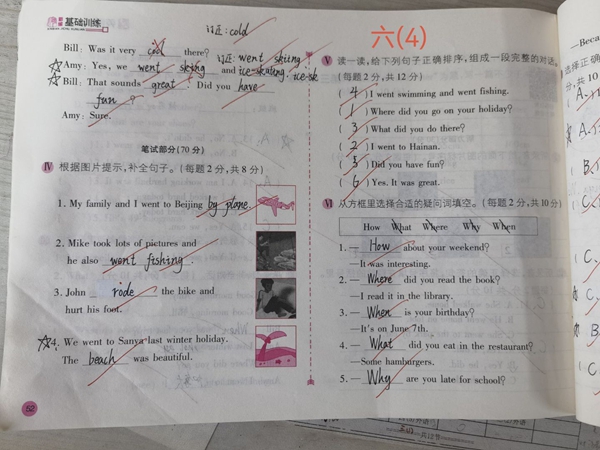 基础训练
订正: cold
六(4)
Bill: Was it very cool there?
订正: went skiing!
Amy: Yes, we went skiing and ice-skating.
Bill: That sounds great! Did you have
fun?
Amy: Sure.
笔试部分(70分)
Ⅳ 根据图片提示,补全句子。(每题2分,共8分)
1. My family and I went to Beijing by plane.
2. Mike took lots of pictures and
he also went fishing.
3. John rode the bike and
hurt his foot.
4. We went to Sanya last winter holiday.
The beach was beautiful.
52
Ⅴ 读一读,给下列句子正确排序,组成一段完整的对话。
(每题2分,共12分)
( 4 ) I went swimming and went fishing.
( 1 ) Where did you go on your holiday?
( 3 ) What did you do there?
( 2 ) I went to Hainan.
( 5 ) Did you have fun?
( 6 ) Yes. It was great.
Ⅵ 从方框里选择合适的疑问词填空。(每题2分,共10分)
How What Where Why When
1. — How about your weekend?
—It was interesting.
2. — Where did you read the book?
—I read it in the library.
3. — When is your birthday?
—It's on June 7th.
4. — What did you eat in the restaurant?
—Some hamburgers.
5. — Why are you late for school?
—Beca